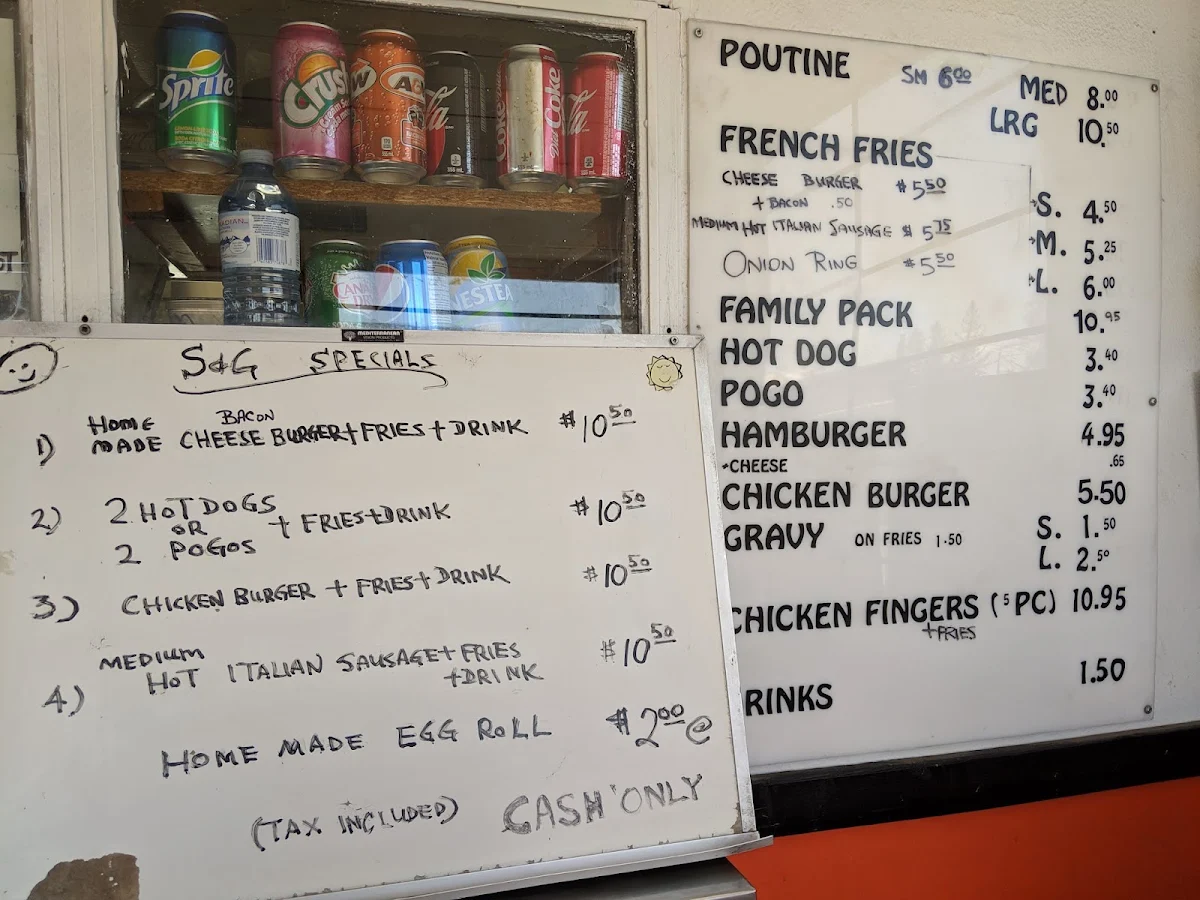 Sprite
Crush
A&W
Coca-Cola
Diet Coke
Coke
CANADA DRY
NESTEA
MEDITERRANEAN
S&G SPECIALS
1) HOME MADE BACON CHEESE BURGER + FRIES + DRINK $10 50
2) 2 HOT DOGS
OR + FRIES + DRINK $10 50
2 POGOS
3) CHICKEN BURGER + FRIES + DRINK $10 50
4) MEDIUM
HOT ITALIAN SAUSAGE + FRIES $10 50
+DRINK
HOME MADE EGG ROLL $2 00 @
(TAX INCLUDED) CASH ONLY
POUTINE SM 6 00 MED 8.00
LRG 10.50
FRENCH FRIES
CHEESE BURGER $5 50
+ BACON .50
S. 4.50
MEDIUM HOT ITALIAN SAUSAGE $5 75
M. 5.25
ONION RING $5 50
L. 6.00
FAMILY PACK 10.95
HOT DOG 3.40
POGO 3.40
HAMBURGER 4.95
CHEESE .65
CHICKEN BURGER 5.50
GRAVY ON FRIES 1.50 S. 1.50
L. 2.50
CHICKEN FINGERS (5 PC) 10.95
+FRIES
RINKS 1.50